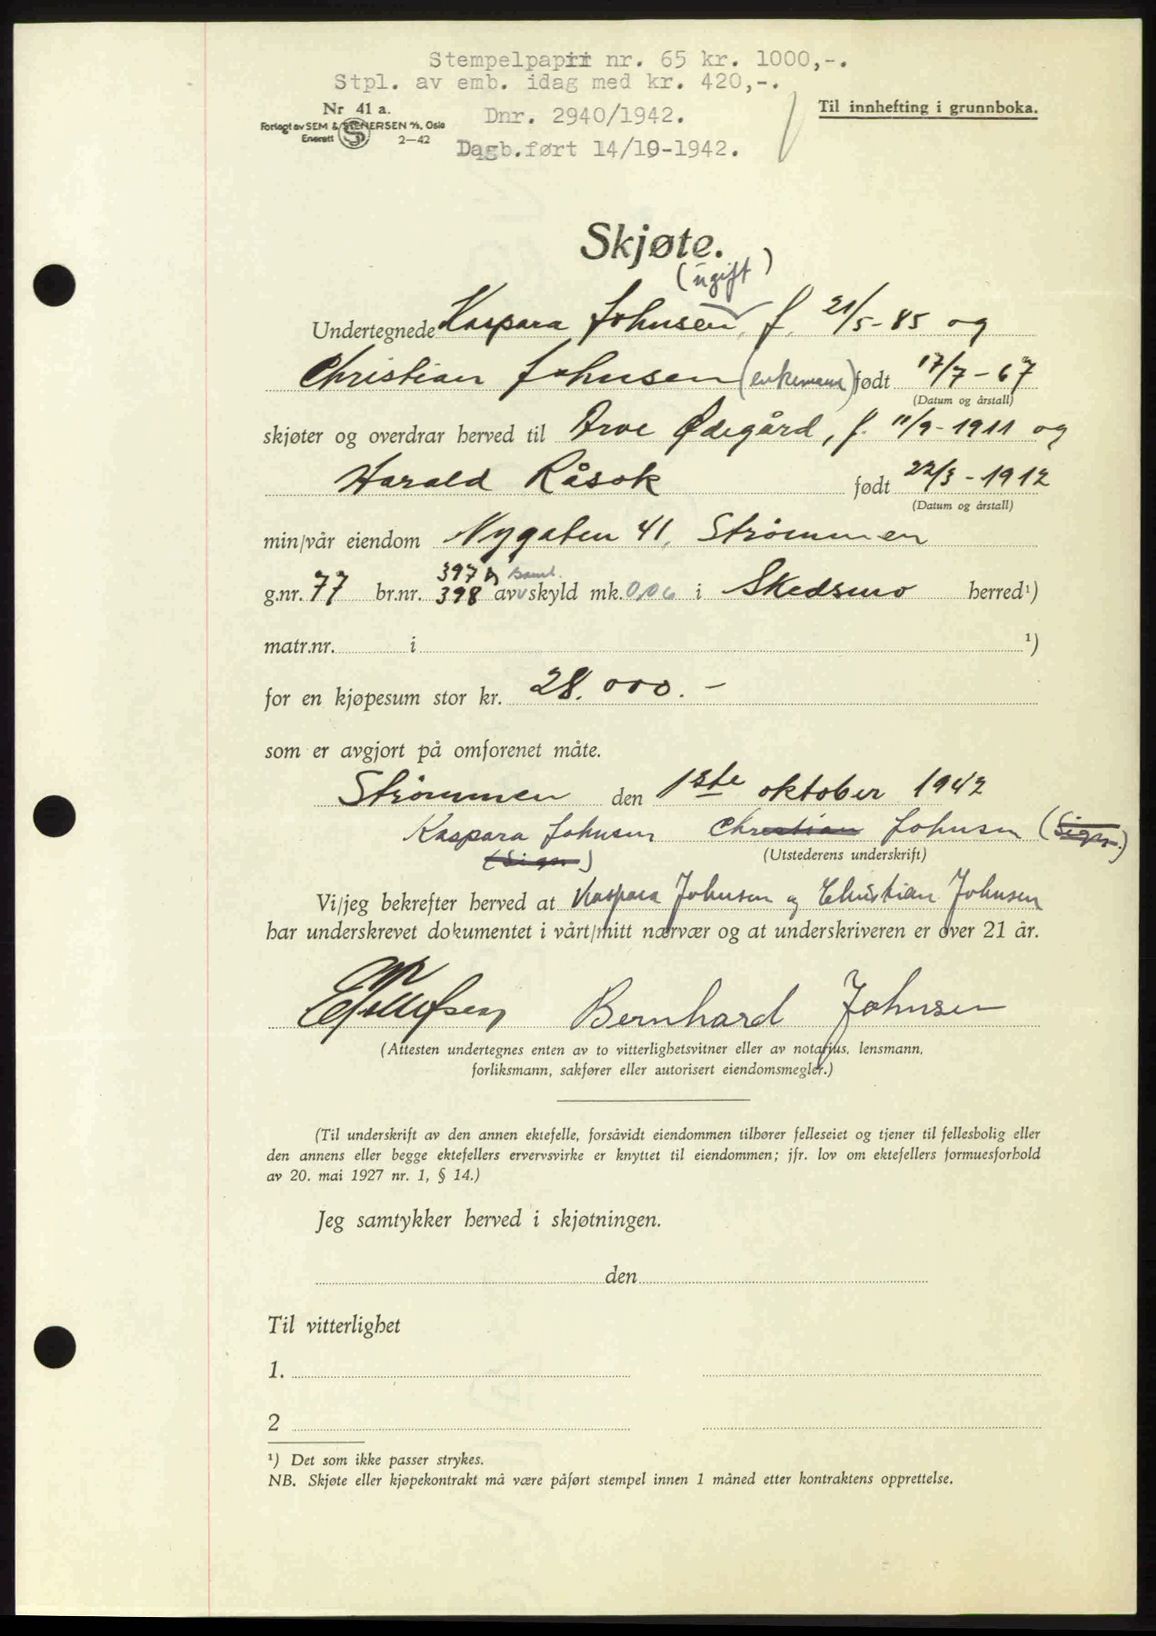 Stempelpapir nr. 65 kr. 1000,-.
Stpl. av emb. idag med kr. 420,-.
Nr 41 a.
Forlagt av SEM & STENERSEN A/S, Oslo
Enerett 2-42
Dnr. 2940/1942.
Dagb.ført 14/10-1942.
Til innhefting i grunnboka.
Skjøte.
(ugift)
Undertegnede Kaspara Johnsen, f. 21/5-85 og
Christian Johnsen (enkemann) født 17/7-67
(Datum og årstall)
skjøter og overdrar herved til Arve Ødegård, f. 11/9-1911 og
Harald Råsok født 22/3-1912
(Datum og årstall)
min/vår eiendom Nygaten 41, Strømmen
397
g.nr. 77 br.nr. 398 av skyld mk. 0,06 i Skedsmo herred¹)
matr.nr. i ¹)
for en kjøpesum stor kr. 28.000.-
som er avgjort på omforenet måte.
Strømmen den 1ste oktober 1942
Kaspara Johnsen Christian Johnsen (Sign.)
(Sign) (Utstederens underskrift)
Vi/jeg bekrefter herved at Kaspara Johnsen og Christian Johnsen
har underskrevet dokumentet i vårt/mitt nærvær og at underskriveren er over 21 år.
Bernhard Johnsen
(Attesten undertegnes enten av to vitterlighetsvitner eller av notarius, lensmann,
forliksmann, sakfører eller autorisert eiendomsmegler.)
(Til underskrift av den annen ektefelle, forsåvidt eiendommen tilhører felleseiet og tjener til fellesbolig eller
den annens eller begge ektefellers ervervsvirke er knyttet til eiendommen; jfr. lov om ektefellers formuesforhold
av 20. mai 1927 nr. 1, § 14.)
Jeg samtykker herved i skjøtningen.
den
Til vitterlighet
1.
2
¹) Det som ikke passer strykes.
NB. Skjøte eller kjøpekontrakt må være påført stempel innen 1 måned etter kontraktens opprettelse.